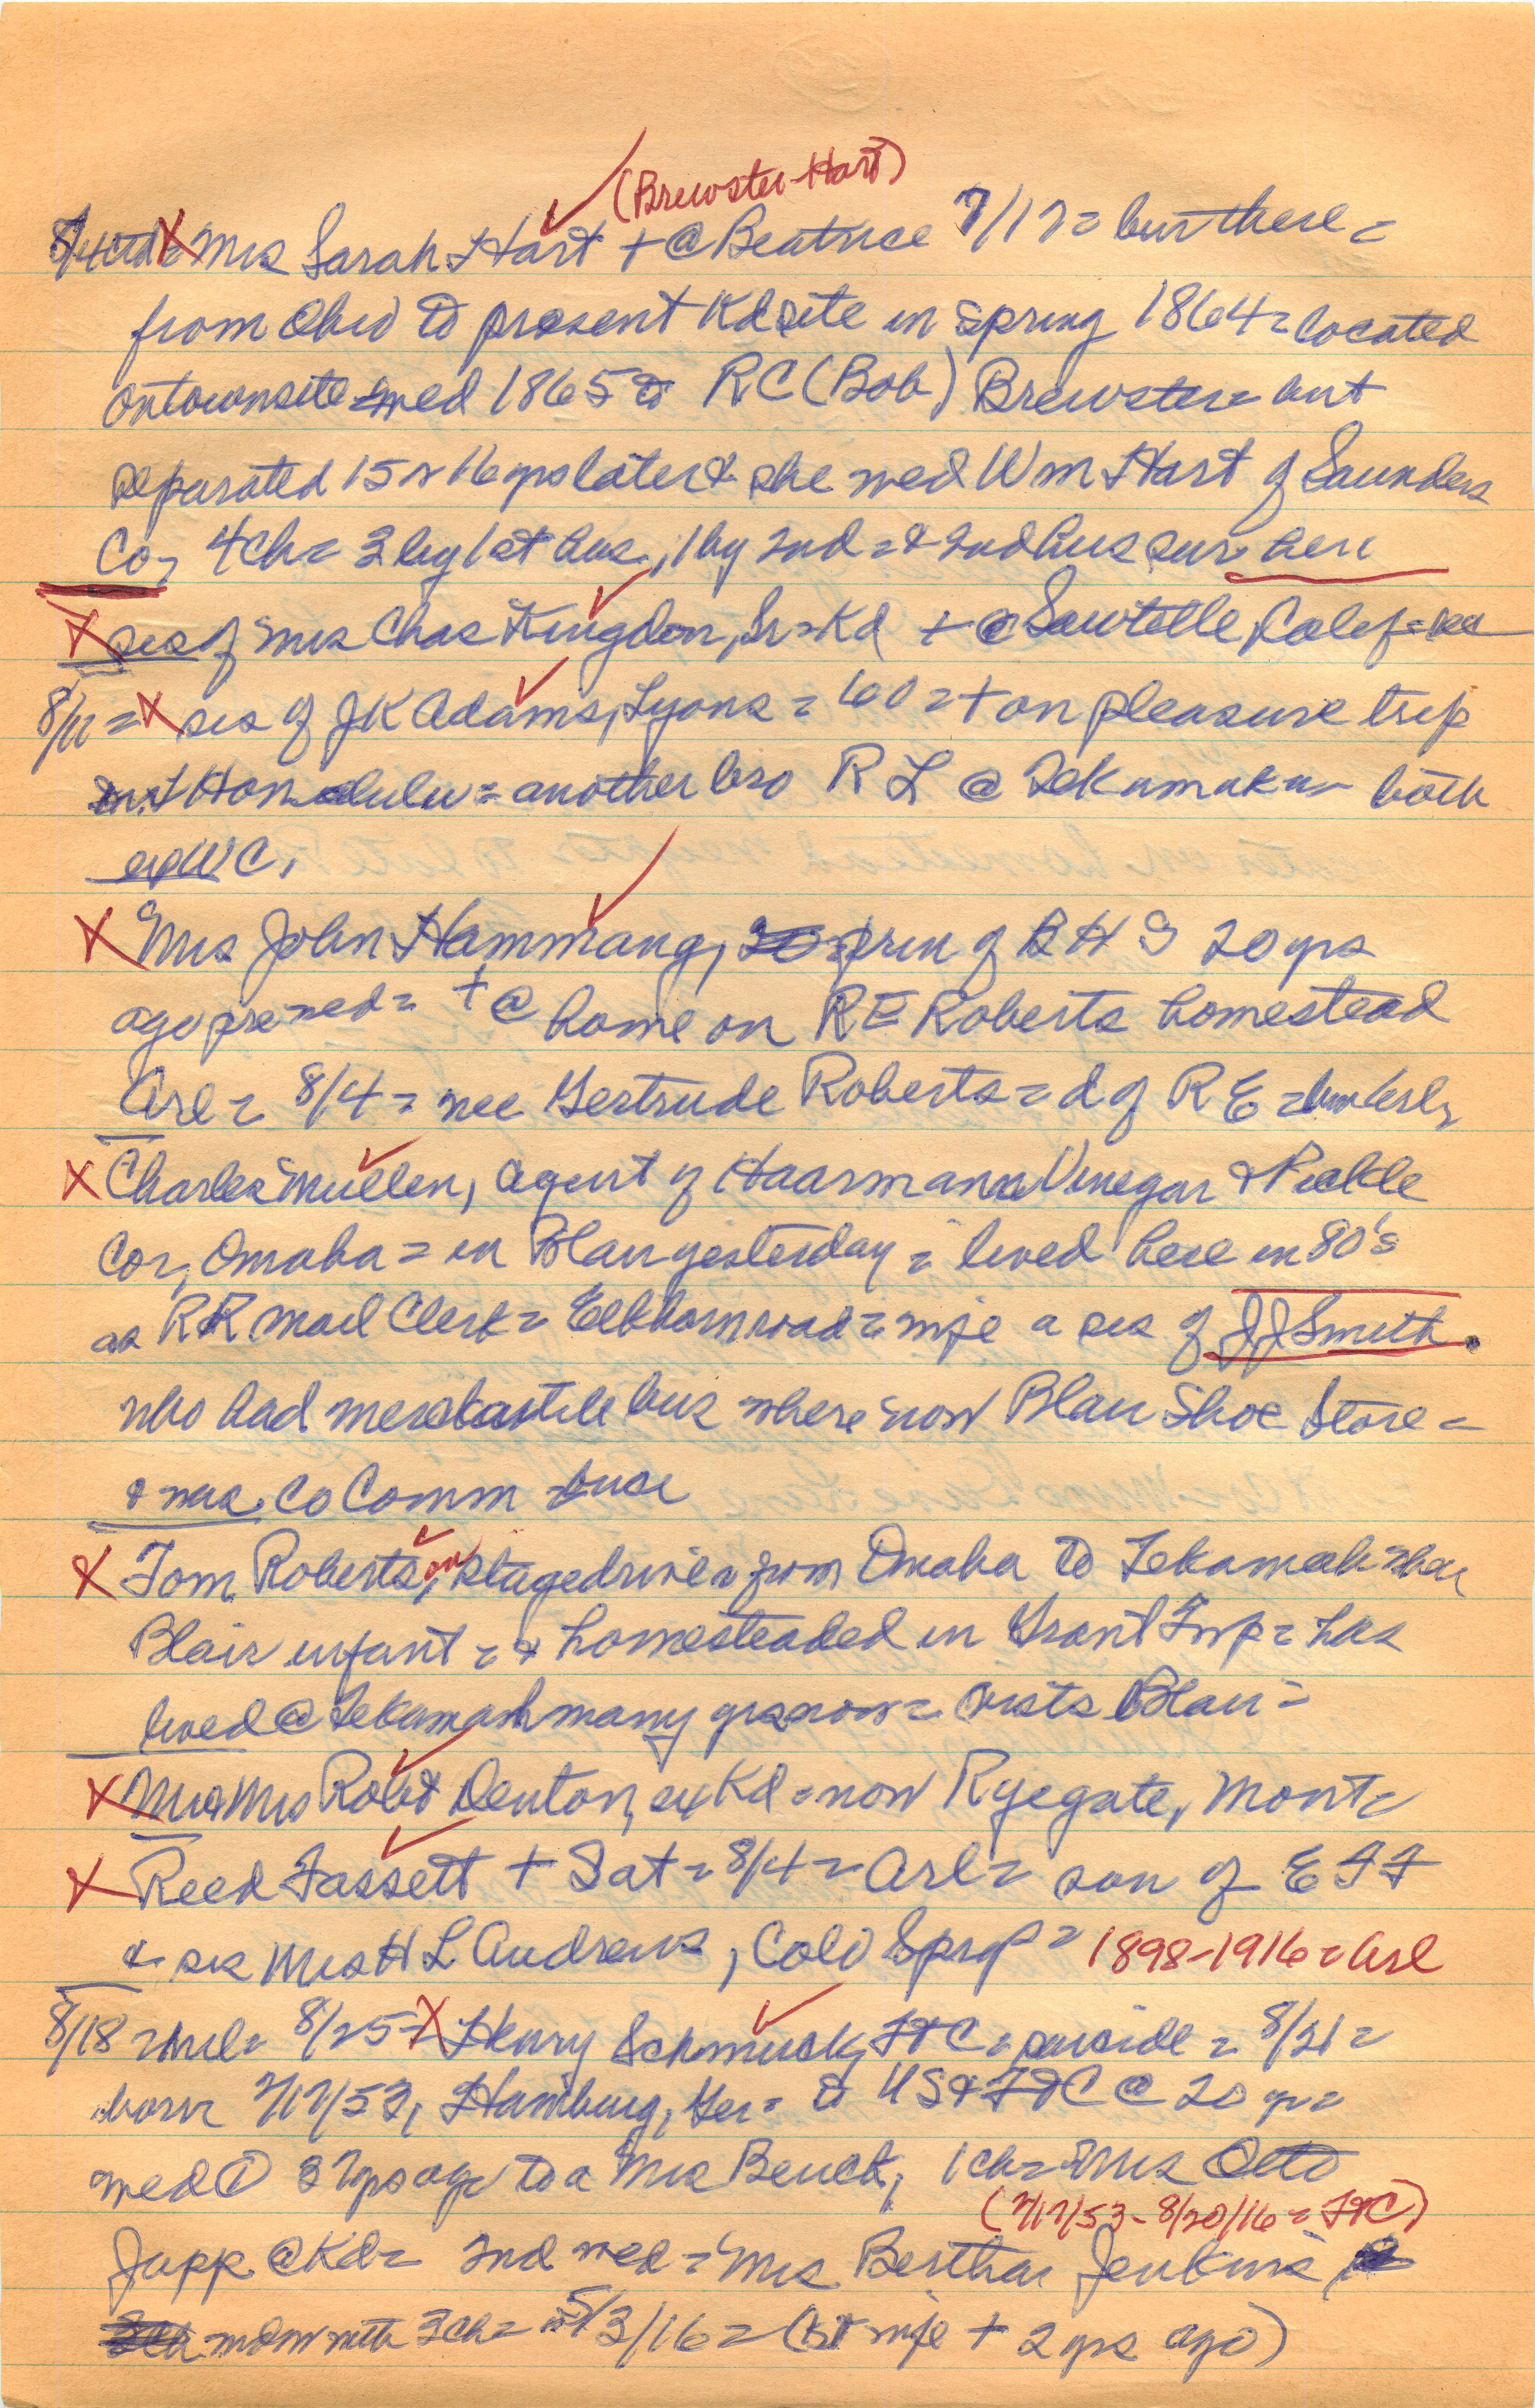 (Brewster-Hart)
Mrs Sarah Hart + @ Beatrice 7/17 = bur there =
from Ohio to present Kd site in spring 1864 = located
on townsite = wed 1865 to RC (Bob) Brewster = but
separated 15 or 16 yrs later & she wed Wm Hart of Saunders
Co = 4 ch = 3 by 1st hus, 1 by 2nd = & 2nd hus sur
X sis of Mrs Chas Kingdon, Sr = Kd + @ Sawtelle, Calif =
8/11 = X sis of JK Adams, Lyons = 60 = + on pleasure trip
Honolulu = another bro R L @ Tekamah = both
ex WC.
X Mrs John Hammang, prin of B H S 20 yrs
ago pre wed = + @ home on RE Roberts homestead
Arl = 8/4 = nee Gertrude Roberts = d of R E = bur Arl =
X Charles Mullen, agent of Haarmann Vinegar & Pickle
Co, Omaha = in Blair yesterday = lived here in 80's
as RR mail clerk = Elkhorn road = wife a sis of JJ Smith
who had mercantile bus where now Blair Shoe Store =
& was Co Comm
X Tom Roberts, stage driver from Omaha to Tekamah when
Blair infant = & homesteaded in Grant Twp = has
lived @ Tekamah many yrs now = visits Blair =
X Mr & Mrs Robt Denton, ex Kd = now Ryegate, Mont =
X Reed Fassett + Sat = 8/4 = Arl = son of E F F
& sis Mrs H L Andrews, Colo Sprgs = 1898-1916 = Arl
8/18 = = 8/25 = X Henry Schmuck, FtC = suicide = 8/21 =
born 7/17/53, Hamburg, Ger = to US & FtC @ 20 yr =
wed @ 37 yrs ago to a Mrs Benck, 1 ch = Mrs Otto
(7/17/53 - 8/20/16 = FtC)
Japp @ Kd = 2nd wed = Mrs Bertha Jenkins
widow with 3 ch = 5/3/16 = (1st wife + 2 yrs ago)